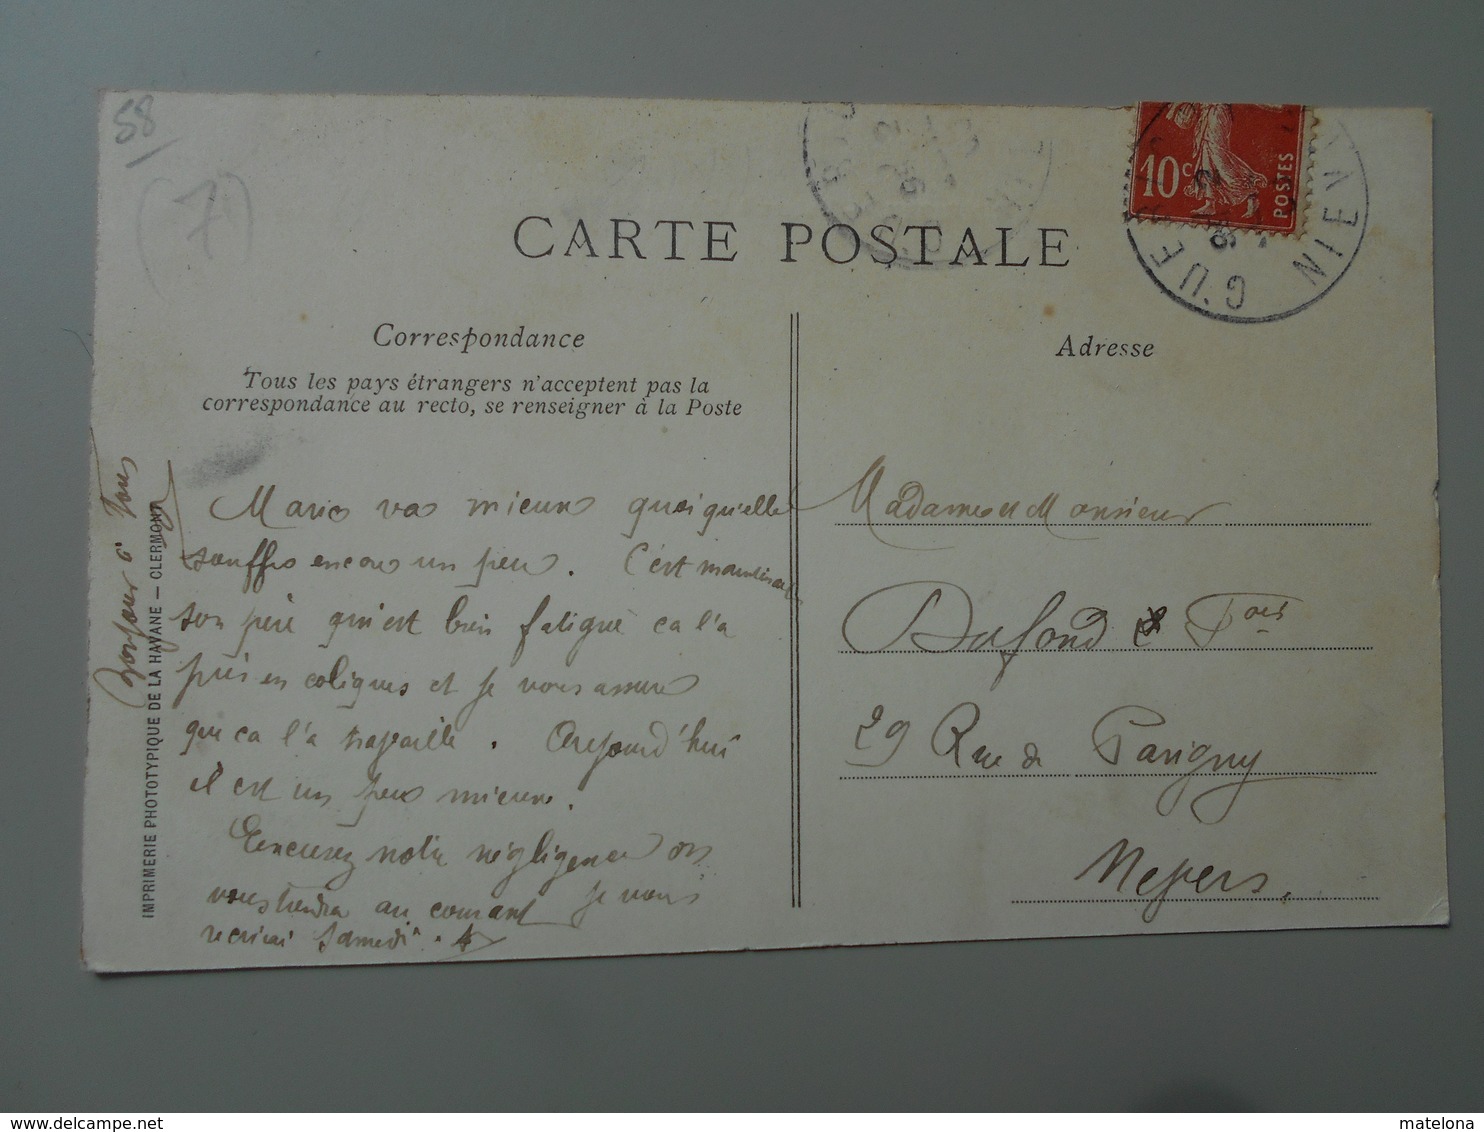 58
(7)
10c
POSTES
GUE NIEV
CARTE POSTALE
Correspondance
Tous les pays étrangers n'acceptent pas la
correspondance au recto, se renseigner à la Poste
Adresse
Marie va mieux quoiqu'elle
souffre encore un peu. C'est maintenant
son père qui est bien fatigué ca l'a
pris en coliques et je vous assure
que ca l'a travaillé. Aujourd'hui
il est un peu mieux.
Excusez notre négligence on
vous tiendra au courant je vous
recrirai Samedi.
Bonjour à Tous
IMPRIMERIE PHOTOTYPIQUE DE LA HAVANE — CLERMONT
Madame et Monsieur
Dufond &
29 Rue de Parigny
Nevers.
delcampe.net
matelona